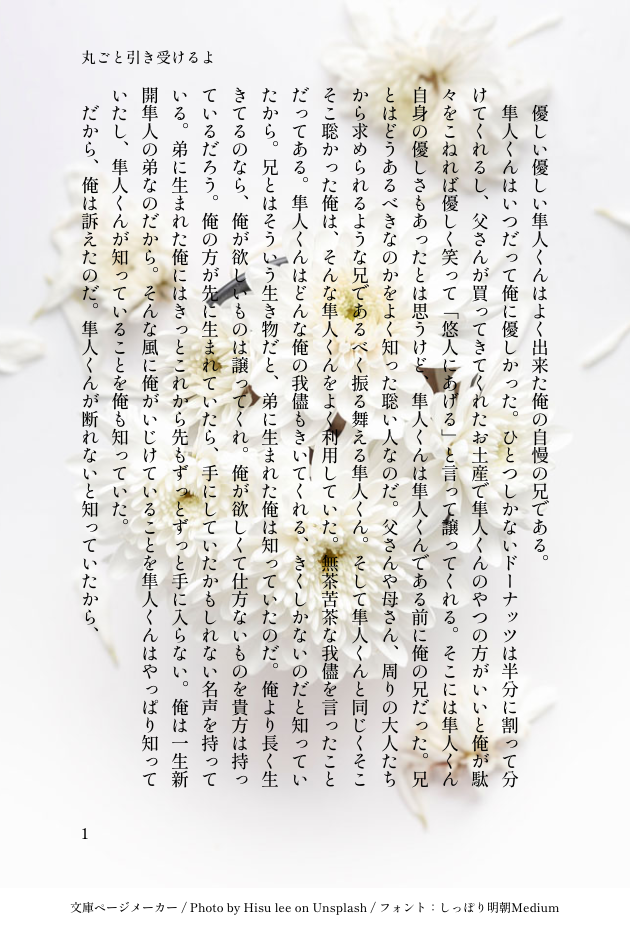 丸ごと引き受けるよ
優しい優しい隼人くんはよく出来た俺の自慢の兄である。
隼人くんはいつだって俺に優しかった。ひとつしかないドーナッツは半分に割って分
けてくれるし、父さんが買ってきてくれたお土産で隼人くんのやつの方がいいと俺が駄
々をこねれば優しく笑って「悠人にあげる」と言って譲ってくれる。そこには隼人くん
自身の優しさもあったとは思うけど、隼人くんは隼人くんである前に俺の兄だった。兄
とはどうあるべきなのかをよく知った聡い人なのだ。父さんや母さん、周りの大人たち
から求められるような兄であるべく振る舞える隼人くん。そして隼人くんと同じくそこ
そこ聡かった俺は、そんな隼人くんをよく利用していた。無茶苦茶な我儘を言ったこと
だってある。隼人くんはどんな俺の我儘もきいてくれる、きくしかないのだと知ってい
たから。兄とはそういう生き物だと、弟に生まれた俺は知っていたのだ。俺より長く生
きてるのなら、俺が欲しいものは譲ってくれ。俺が欲しくて仕方ないものを貴方は持っ
ているだろう。俺の方が先に生まれていたら、手にしていたかもしれない名声を持って
いる。弟に生まれた俺にはきっとこれから先もずっとずっと手に入らない。俺は一生新
開隼人の弟なのだから。そんな風に俺がいじけていることを隼人くんはやっぱり知って
いたし、隼人くんが知っていることを俺も知っていた。
だから、俺は訴えたのだ。隼人くんが断れないと知っていたから、
1
文庫ページメーカー / Photo by Hisu lee on Unsplash / フォント：しっぽり明朝Medium